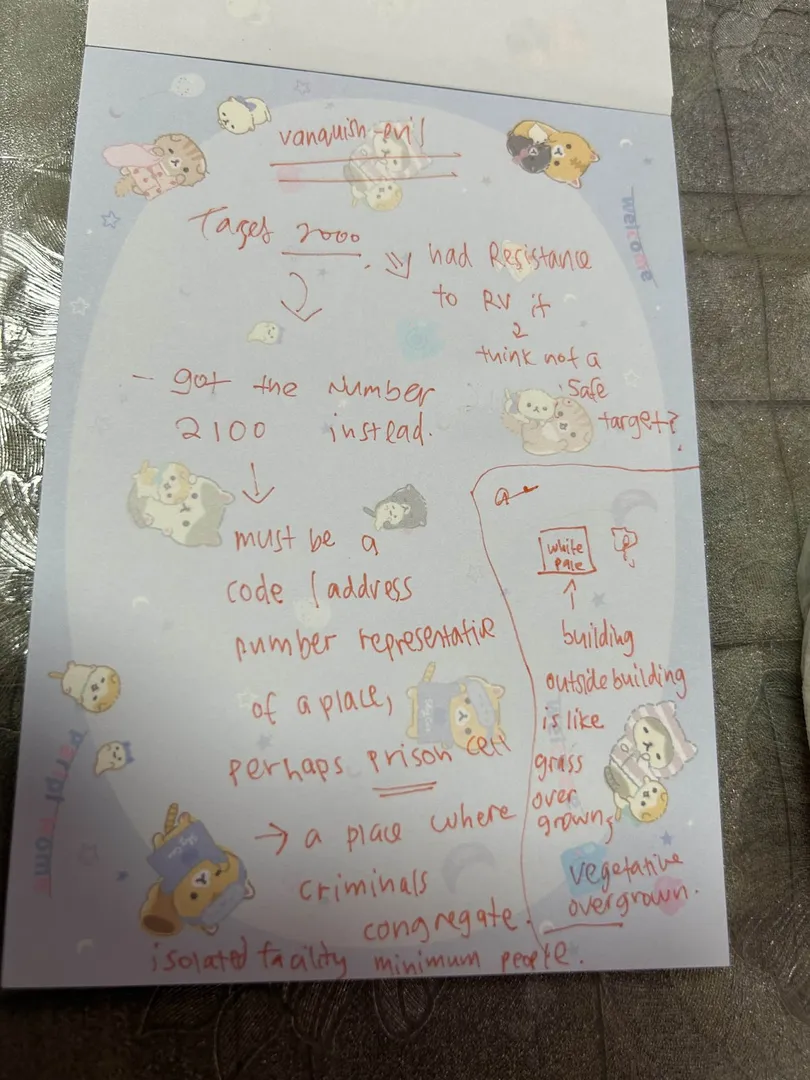 vanquish evil
Tages 2000
had Resistance
to RV it
2
think not a
safe
target?
- got the number
2100 instead.
must be a
code / address
number representative
of a place,
perhaps prison cell
→ a place where
criminals
congregate.
isolated facility minimum people.
a
white
pale
building
outside building
is like
grass
over
grown,
vegetative
overgrown.
welcome